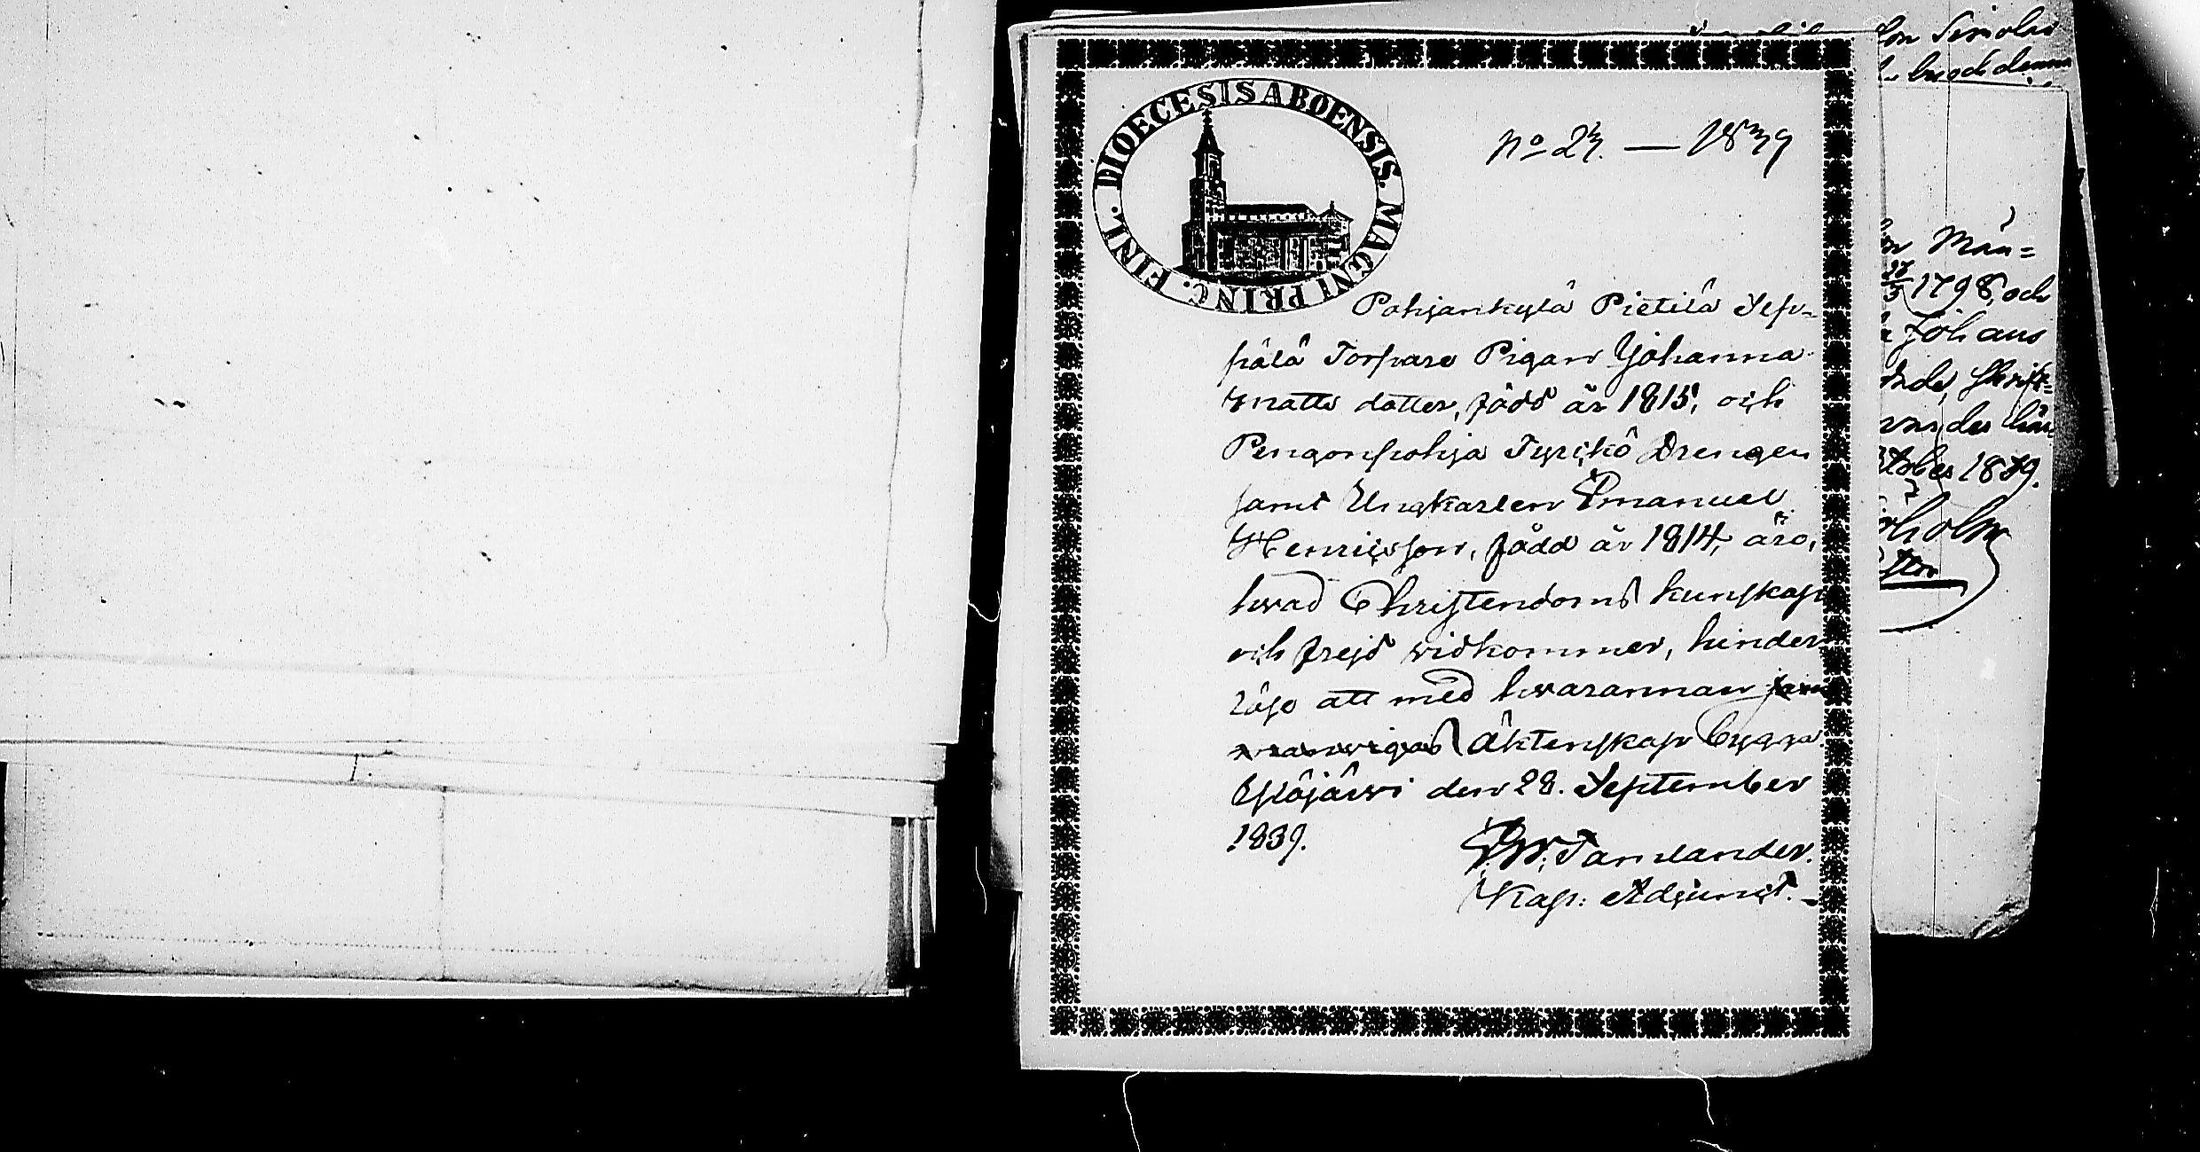 DIOECESIS ABOENSIS. MAGNI PRINC. FINL.
No 23. — 1839
Pohjankylä Pietilä Sep-
pälä Torpare Pigan Johanna
Matts dotter, född år 1815, och
Pengonpohja Tyrckö Drengen
samt Ungkarlen Emanuel
Henricsson, född år 1814, äro,
hvad Christendoms kunskap
och frejd vidkommer, hinder
löse att med hvarannan
äktenskap bygga.
Ylöjärvi den 28. September
1839.
Tamlander.
Kap: Adjunct.
lon Simolas
och denna
Mån=
27/3 1798, och
Johans
Skrift=
1839.
holm